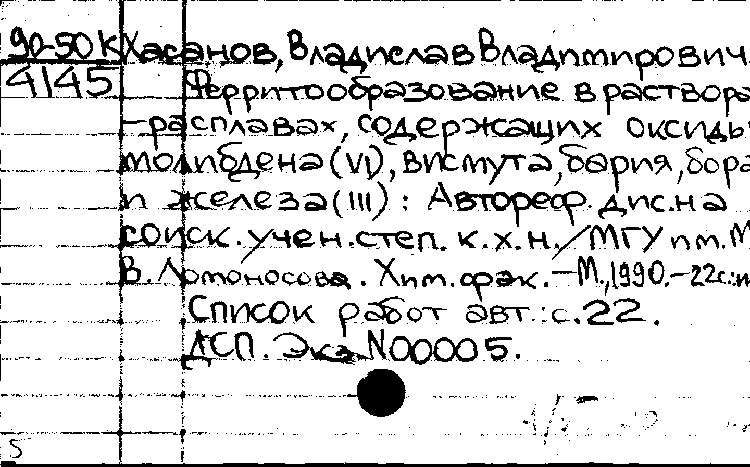 90-50К Хасанов, Владислав Владимирович.
4145 Ферритообразование в раствора
-расплавах, содержащих оксиды
молибдена (VI), висмута, бария, бора
и железа (III) : Автореф. дис. на
соиск. учен. степ. к. х. н. / МГУ им. М.
В. Ломоносова. Хим. фак. – М., 1990. – 22с.: и
Список работ авт.: с. 22.
ДСП. Экз. N00005.
5